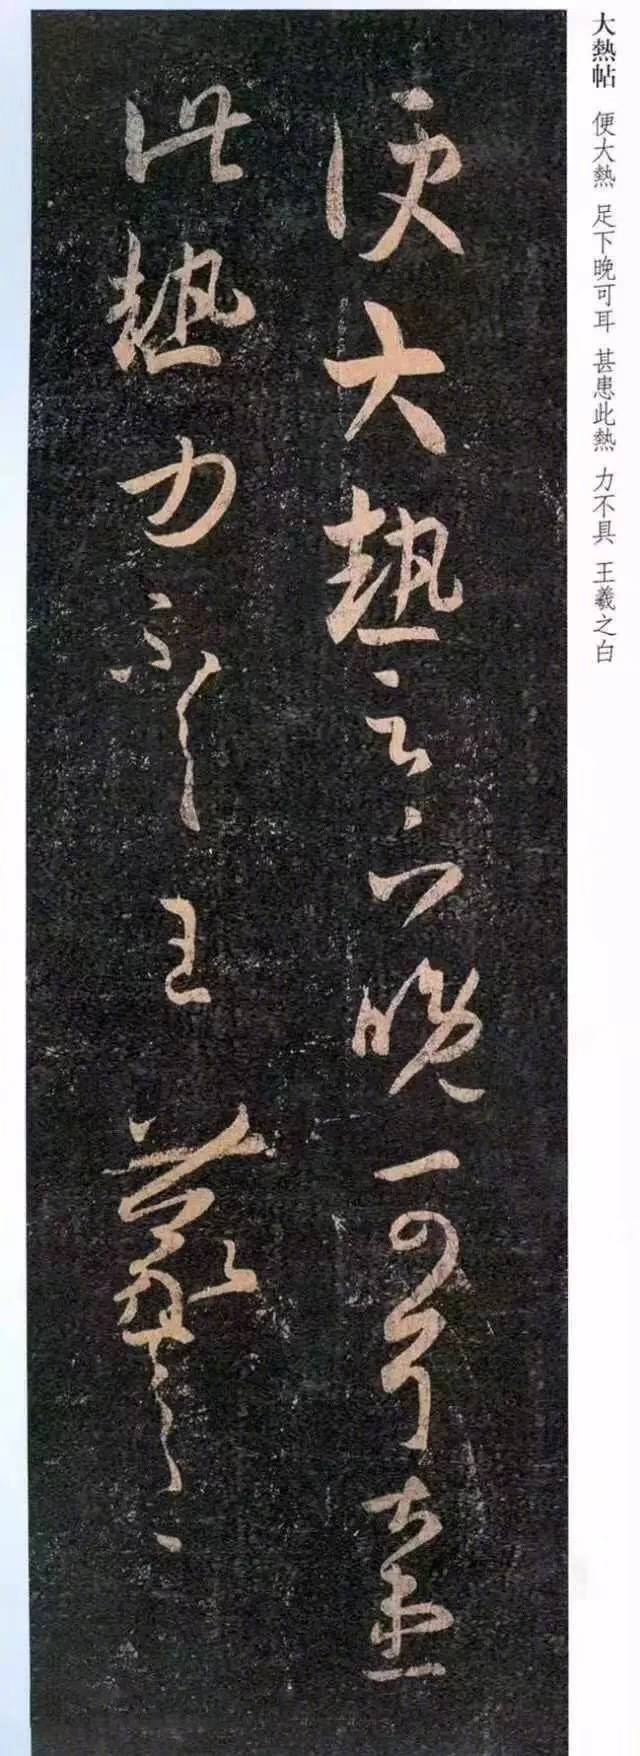 大熱帖 便大熱 足下晚可耳 甚患此熱 力不具 王羲之白
便大熱足下晚可耳甚患
此熱力不具王羲之白